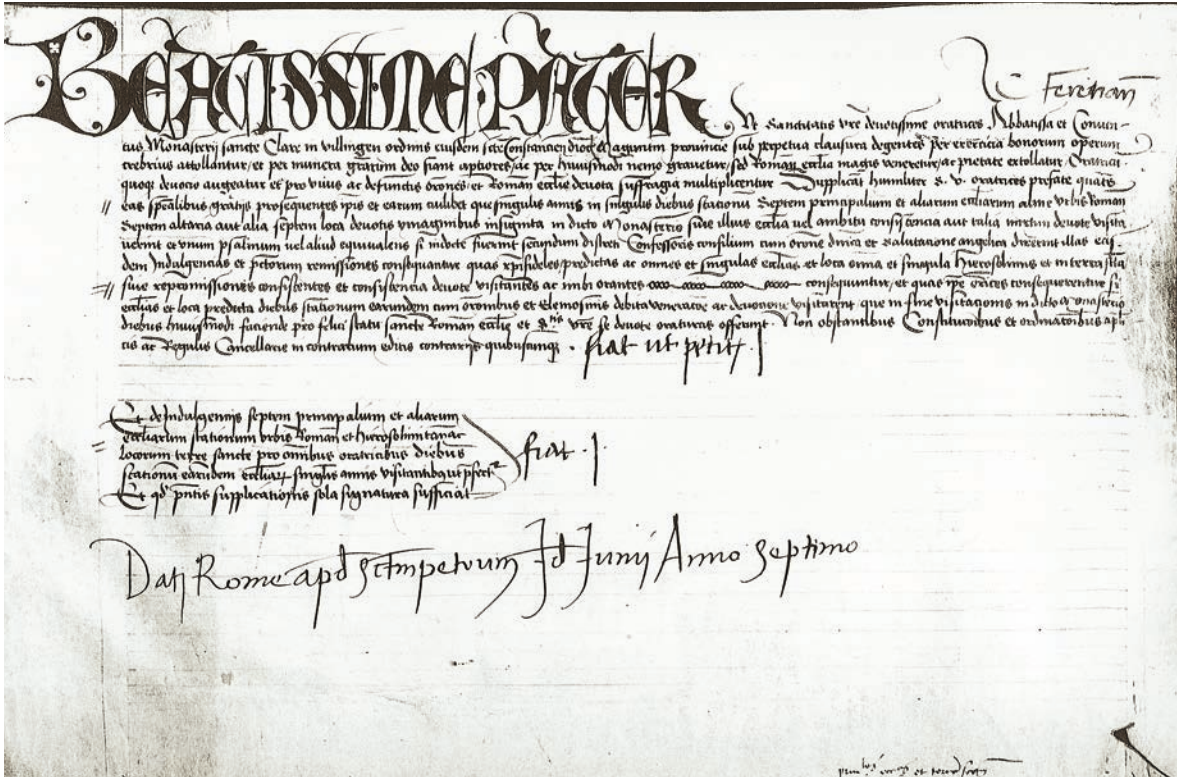 BEATISSIME PATER
C Feretran̄
Ut Sanctitatis vr̄e devotissime oratrices Abbatissa et Conven-
tus Monasterij sancte Clare in villingen ordinis eiusdem sc̄te Constancien̄ dioc̄ et Maguntin̄ provincie sub perpetua clausura degentes per exercicia bonorum operum
crebrius attollantur et per munera gr̄arum deo fiant aptiores ac per huiusmodi nemo gravetur sed Roman̄ ecclia magis veneretur ac pietate extollatur Oratricu
quoq devocio augeatur et pro vivis ac defunctis or̄ones et Roman̄ ecclie devota suffragia multiplicentur Supplicāt humiliter S. v. oratrices prefate quat̄s
eas sp̄ealibus gratijs prosequentes ip̄is et earum cuilibet que singulis annis in singulis diebus stacionū Septem principalium et aliarum eccl̄iarum alme urbis Roman̄
Septem altaria aut alia septem loca devotis ymaginibus insignita in dicto Monasterio sive illius ecclia vel ambitu consistencia aut talia devote visita
verint et unum psalmum vel aliud equivalens si indocte fuerint secundum discreti Confessoris consilium cum or̄one dn̄ica et Salutatione angelica dixerint illas eas-
dem Indulgencias et pctorum remissiones consequantur quas xp̄ifideles predictas ac omnes et singulas ecclias et loca om̄ia et singula Hierosolimis et in terra sc̄ta
sive repromissiones consistentes et consistencia devote visitantes ac inibi orantes consequuntur et quas ip̄e or̄ices consequerentur si
ecclias et loca predicta diebus stationum earundem cum or̄onibus et elemosinis debita veneratōe ac devocione visitarent que in fine visitacionis in dicto Monasterio
diebus huiusmodi faciende pro felici statu sancte Roman̄ ecclie et S.tis vr̄e se devote oraturas offerunt. Non obstantibus Constitucōibus et ordinatōibus ap̄li
cis ac Regulis Cancellarie in contrarium editis contrarijs quibuscunq. fiat ut petit̄ I
Et de Indulgencijs septem principalium et aliarum
eccliarum stationum urbis Roman̄ et Hierosolimitan̄ ac
locorum terre sancte pro om̄nibus oratricibus diebus
stationū earundem eccliaȝ singulis annis visitantibꝫ ut p̄fert̄
Et qd̄ pn̄tis supplicationis sola signatura sufficiat
fiat. I
Dat̄ Rome apd̄ Sctm̄ petrum Id Junij Anno septimo